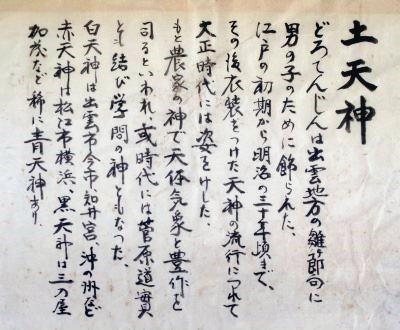 土天神
どろてんじんは出雲地方の雛節句に
男の子のために飾られた、
江戸の初期から明治の三十年頃まで、
その後衣裳をつけた天神の流行につれて
大正時代には姿をけした、
もと農家の神で天体気象と豊作を
司るといわれ、或時代には菅原道真
とも結び学問の神ともなつた、
白天神は出雲市今市、知井宮、沖の州など
赤天神は松江市横浜、黒天神は三刀屋
加茂など稀に青天神あり